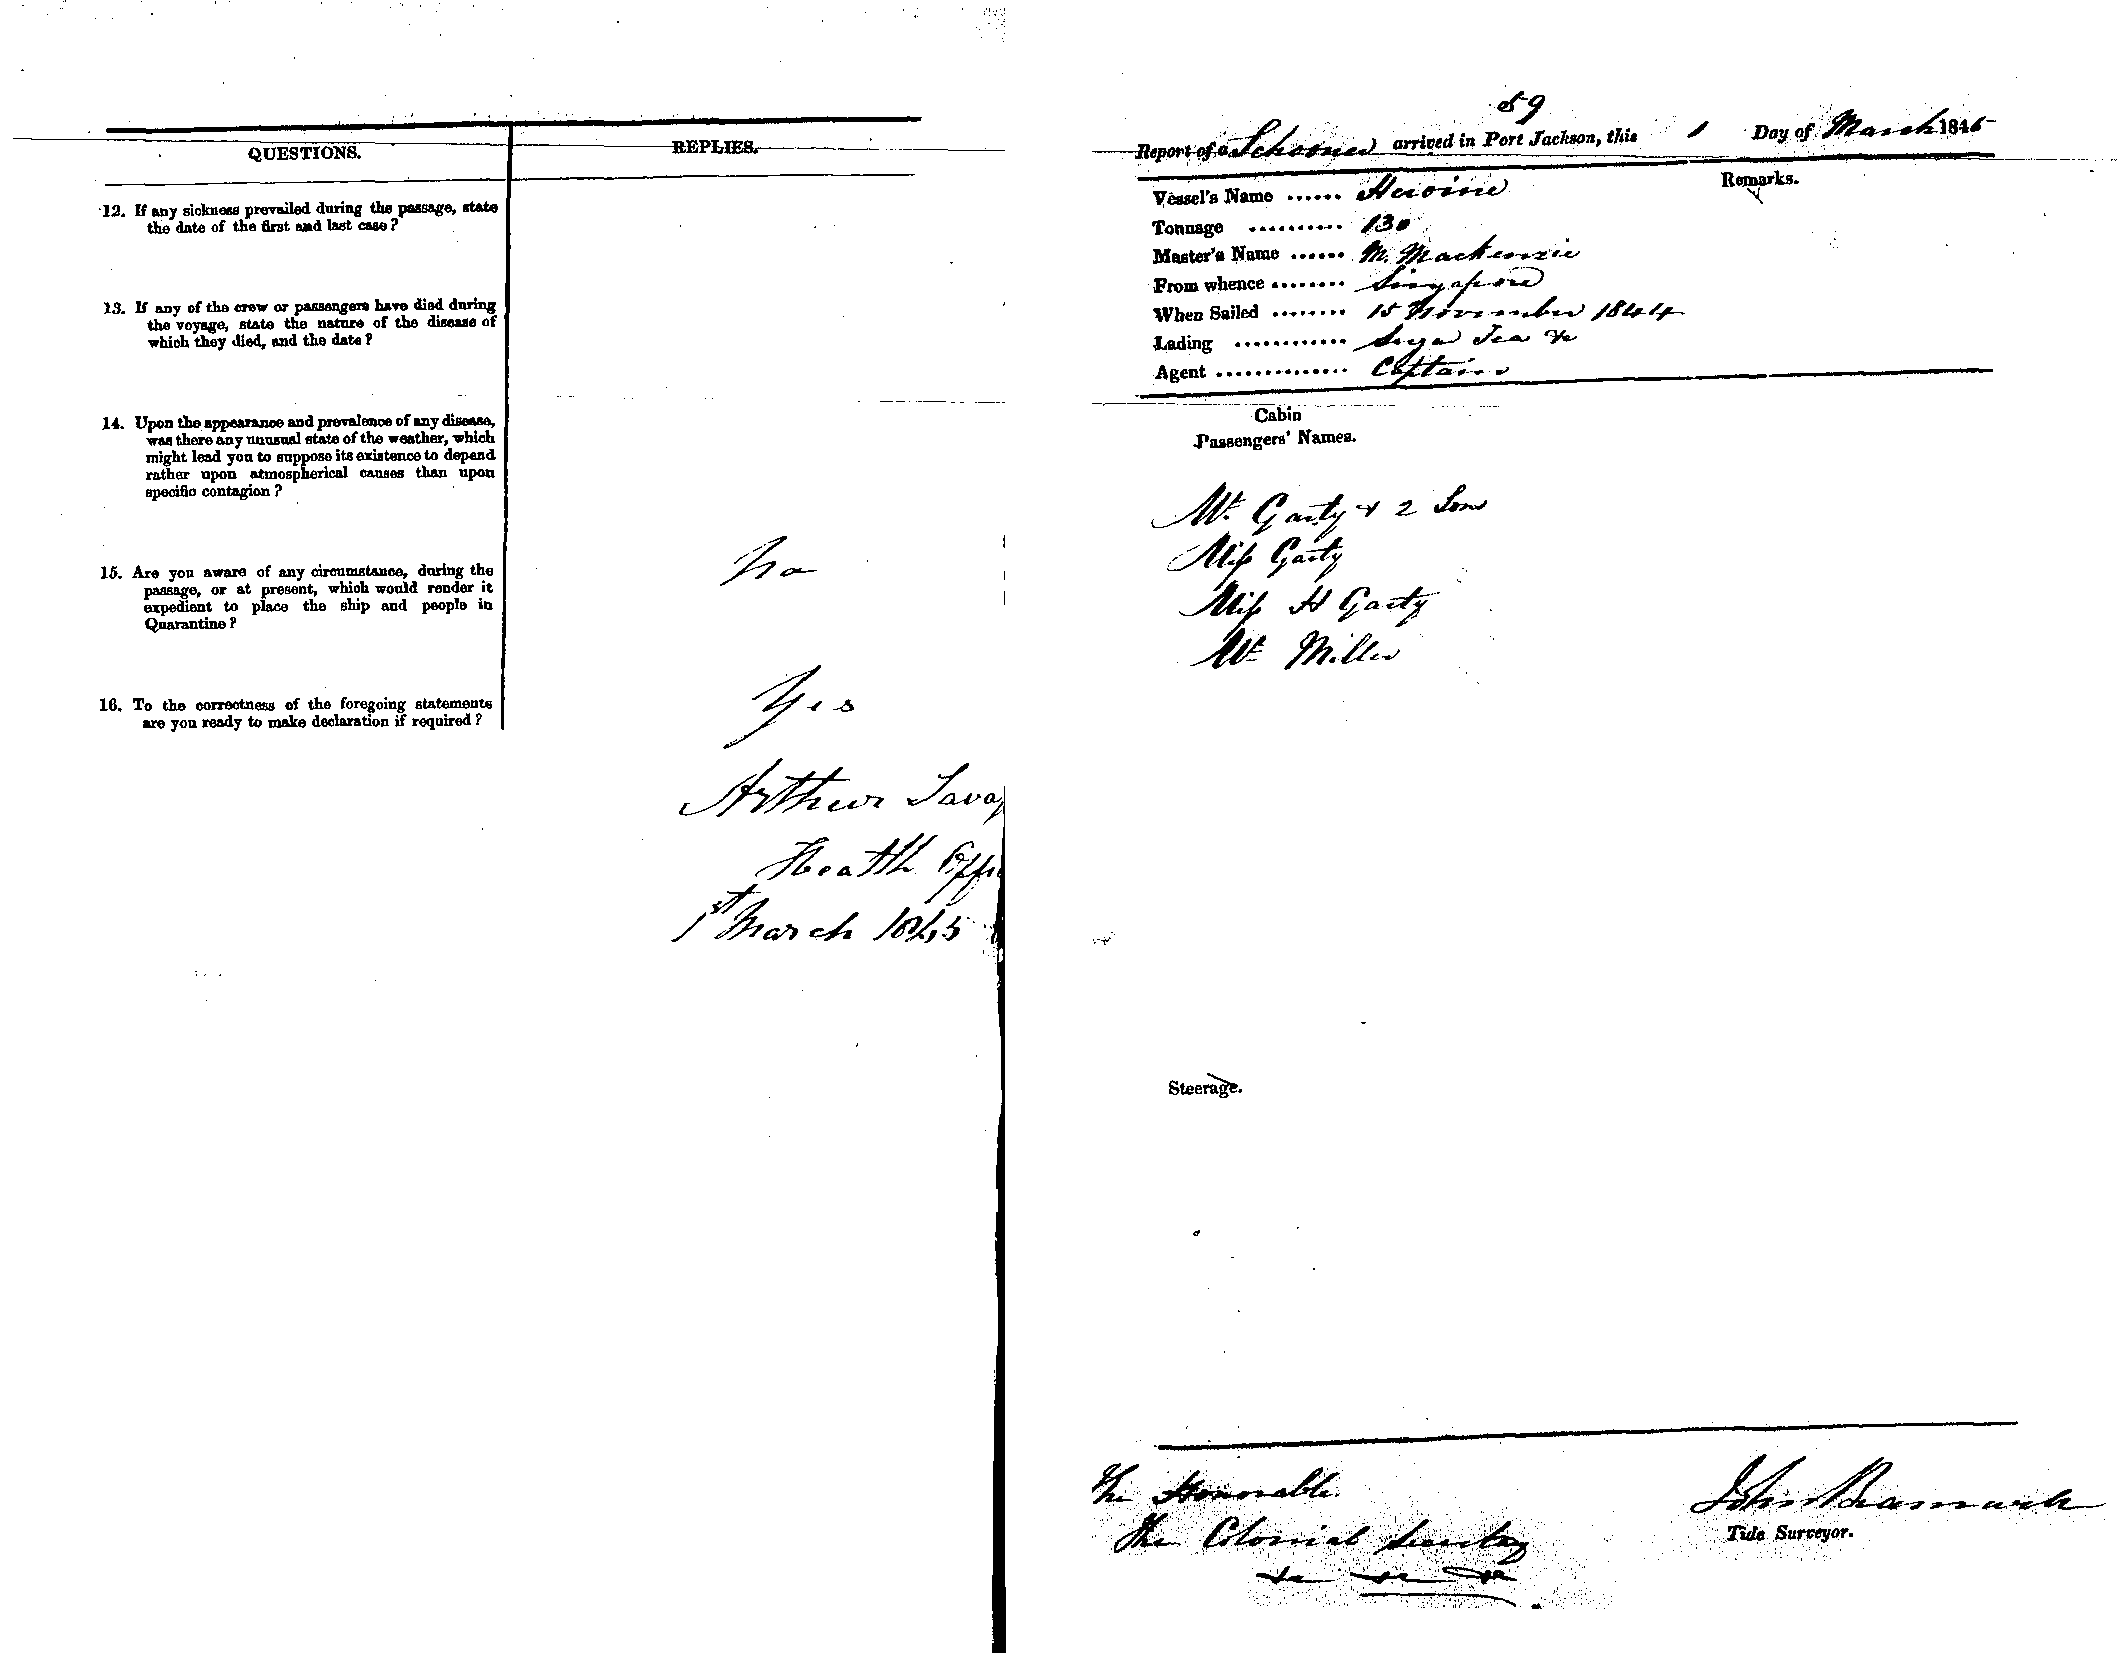 QUESTIONS.
REPLIES.
12. If any sickness prevailed during the passage, state
the date of the first and last case?
13. If any of the crew or passengers have died during
the voyage, state the nature of the disease of
which they died, and the date?
14. Upon the appearance and prevalence of any disease,
was there any unusual state of the weather, which
might lead you to suppose its existence to depend
rather upon atmospherical causes than upon
specific contagion?
15. Are you aware of any circumstance, during the
passage, or at present, which would render it
expedient to place the ship and people in
Quarantine?
No
16. To the correctness of the foregoing statements
are you ready to make declaration if required?
Yes
Arthur Savag
Health Offi
1st March 1845
59
Report of a Schooner arrived in Port Jackson, this 1 Day of March 1845
Remarks.
Vessel's Name ...... Heroine
Tonnage .......... 130
Master's Name ...... M. Mackenzie
From whence ........ Singapore
When Sailed ........ 15 November 1844
Lading ............ Sugar Tea &c
Agent .............. Captain
Cabin
Passengers' Names.
Mr. Garty & 2 Sons
Miss Garty
Miss H Garty
Mr Miller
Steerage.
The Honorable
The Colonial Secretary
&c &c &c
John Bramwell
Tide Surveyor.